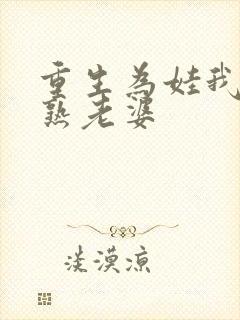 重生为娃我
熟老婆
淡漠凉